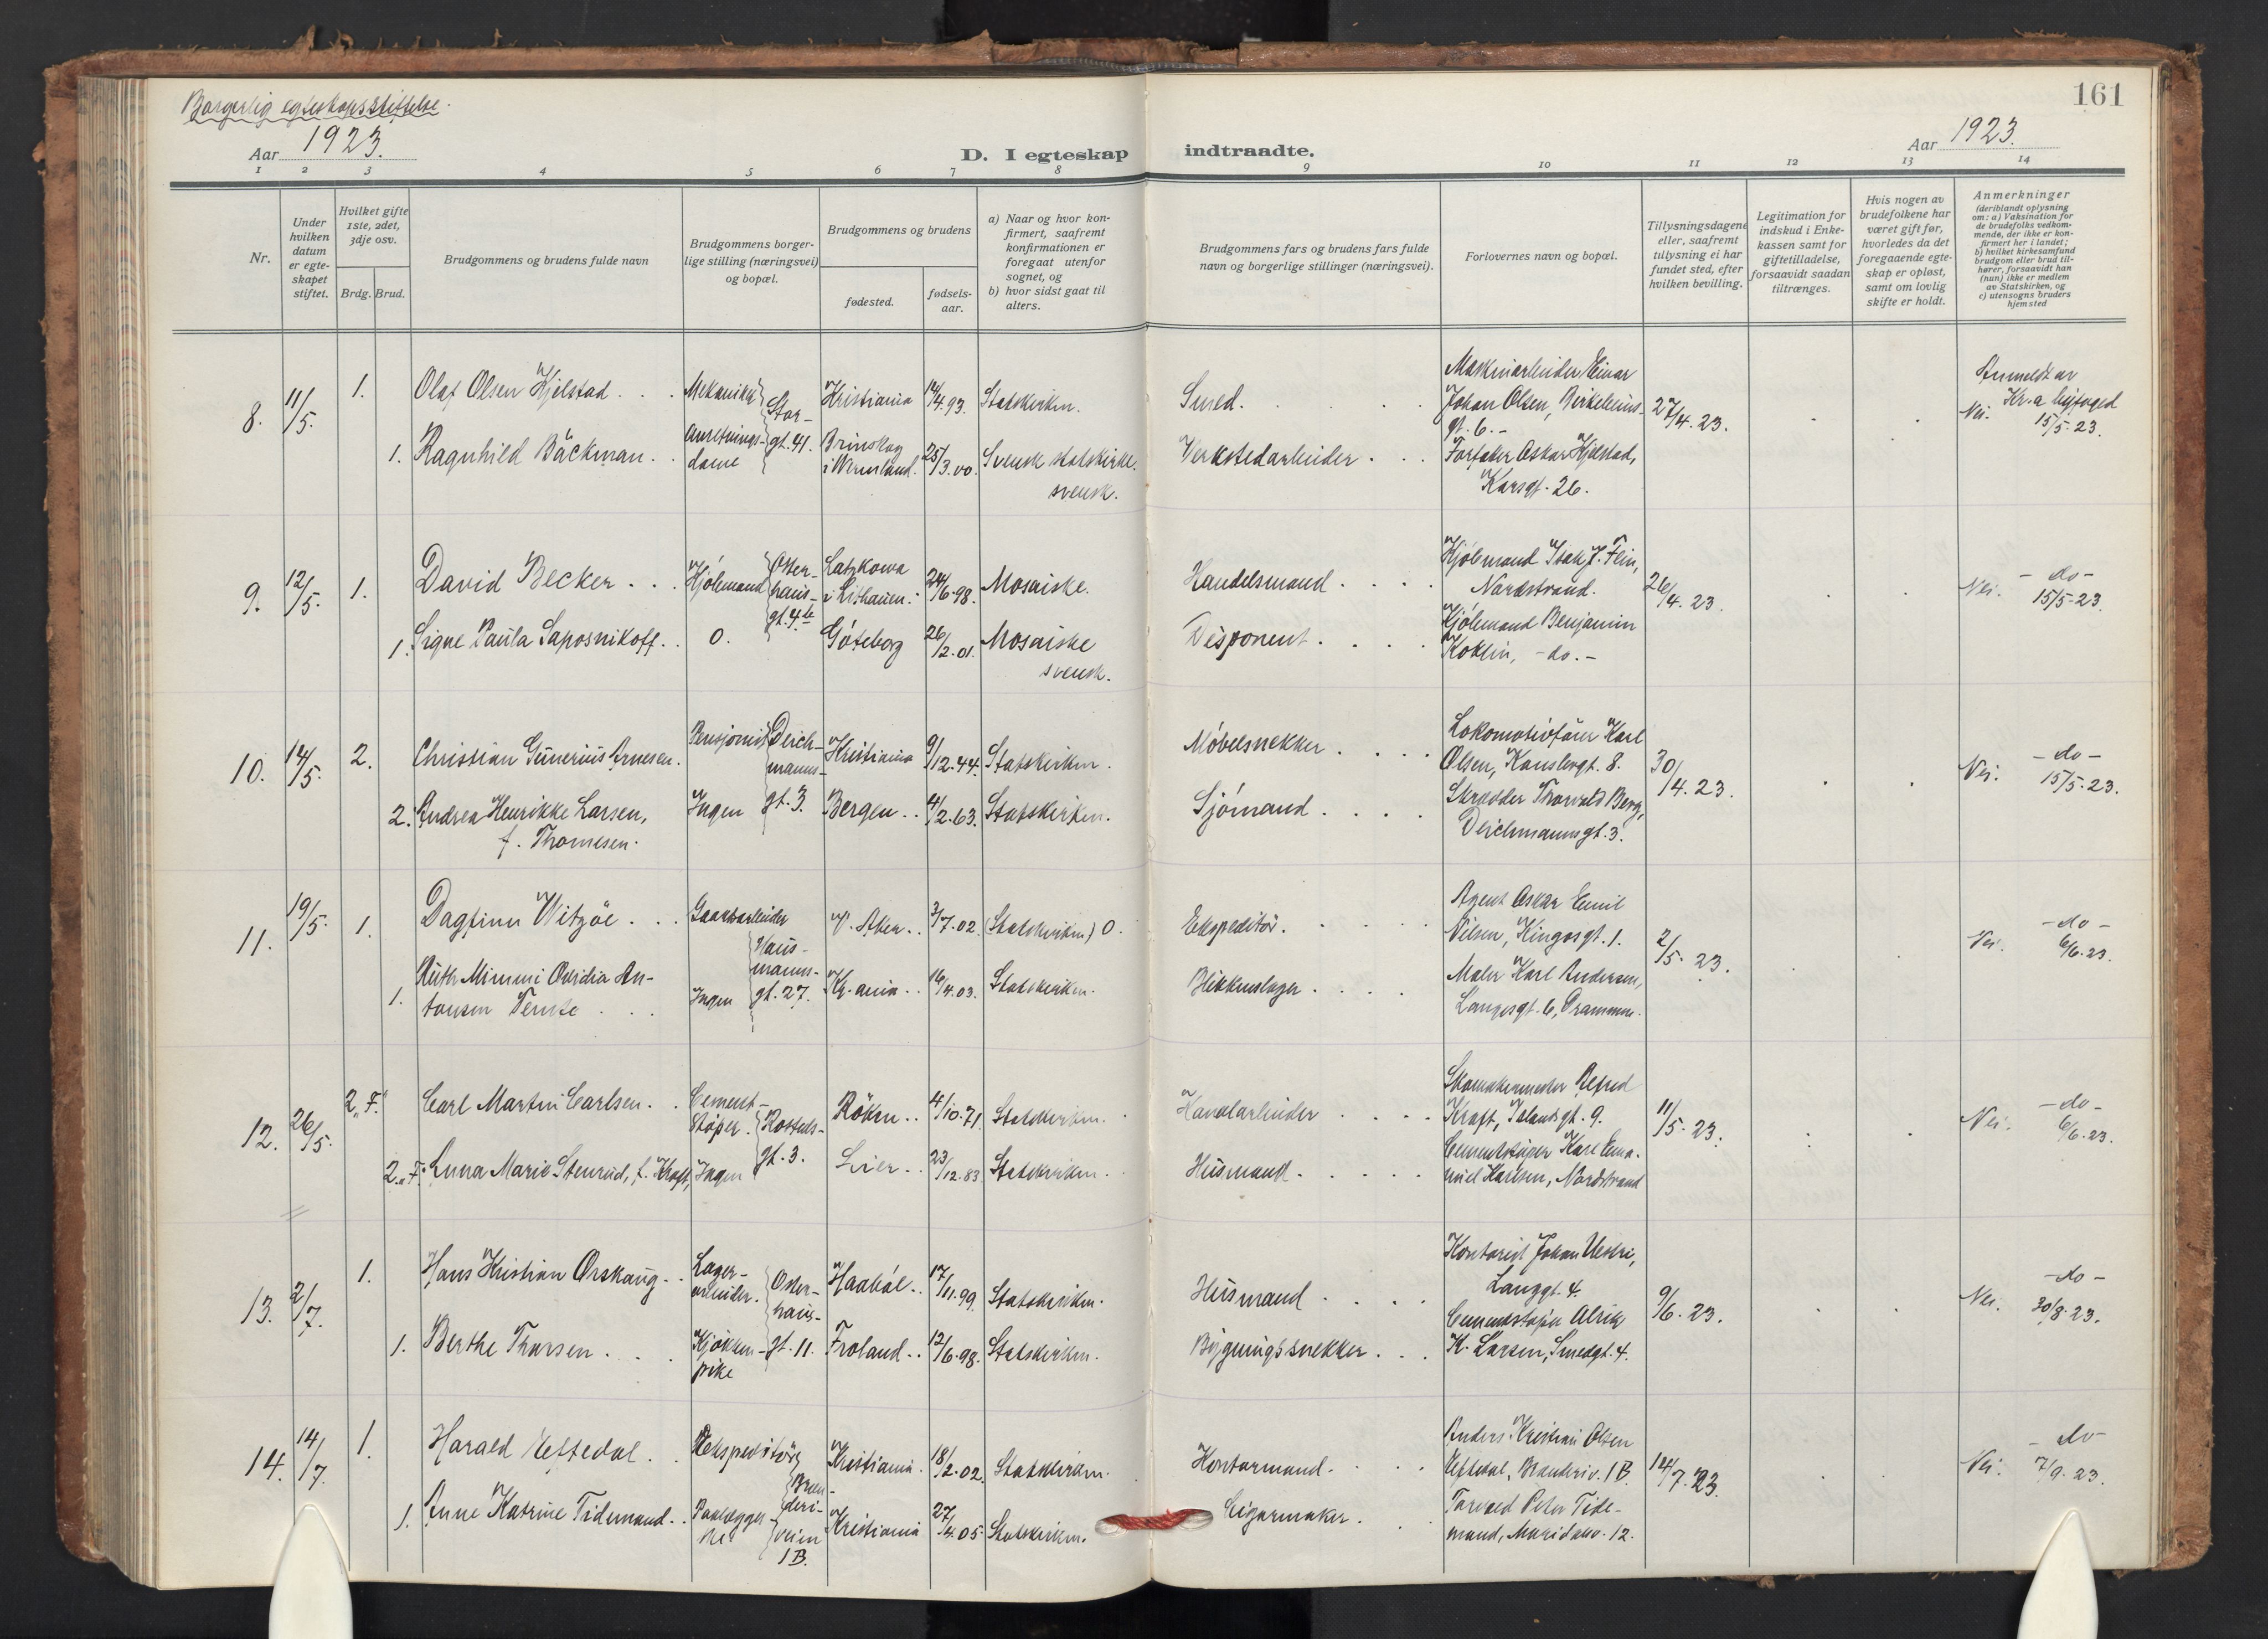 Borgerlig egteskapsstiftelse.
161
Aar 1923.
D. I egteskap indtraadte.
Aar 1923.
1 2 3 4 5 6 7 8 9 10 11 12 13 14
Nr.
Under hvilken datum er egteskapet stiftet.
Hvilket gifte 1ste, 2det, 3dje osv.
Brdg. Brud.
Brudgommens og brudens fulde navn
Brudgommens borgerlige stilling (næringsvei) og bopæl.
Brudgommens og brudens
fødested.
fødselsaar.
a) Naar og hvor konfirmert, saafremt konfirmationen er foregaat utenfor sognet, og
b) hvor sidst gaat til alters.
Brudgommens fars og brudens fars fulde navn og borgerlige stillinger (næringsvei).
Forlovernes navn og bopæl.
Tillysningsdagene eller, saafremt tillysning ei har fundet sted, efter hvilken bevilling.
Legitimation for indskud i Enkekassen samt for giftetilladelse, forsaavidt saadan tiltrænges.
Hvis nogen av brudefolkene har været gift før, hvorledes da det foregaaende egteskap er opløst, samt om lovlig skifte er holdt.
Anmerkninger
(deriblandt oplysning om: a) Vaksination for de brudefolks vedkommende, der ikke er konfirmert her i landet; b) hvilket kirkesamfund brudgom eller brud tilhører, forsaavidt han (hun) ikke er medlem av Statskirken, og c) utensogns bruders hjemsted
8. 11/5. 1. Olaf Olsen Hjelstad. Mekaniker Storgt. 41. Kristiania 14/4.93. Statskirken. Smed.
Maskinarbeider Einar Johan Olsen, Birkeleiusgt. 6.-
27/4.23. Nei. Anmeldt av Kr.a byfoged 15/5.23.
1. Ragnhild Bäckman. Anretningsdame Brinskog i Wermland. 25/3.00. Svensk statskirke. svensk. Verkstedarbeider.
Oskar Hjelstad, Karsgt. 26.
9. 12/5. 1. David Becker. Kjøbmand Osterhausgt. 4 Latzkowa i Lithauen. 24/6.98. Mosaiske. Handelsmand.
Kjøbmand Isak J. Flin, Nordstrand.
26/4.23. Nei. -do- 15/5-23.
1. Signe Paula Saposnikoff. 0. Göteborg 26/2.01. Mosaiske svensk. Disponent.
Kjøbmand Benjamin Koklin, -do.-
10. 14/5. 2. Christian Gunerius Arnesen. Pensjonist Deichmannsgt. 3. Kristiania 9/12.44. Statskirken. Møbelsnekker.
Lokomotivfører Karl Olsen, Kanslergt. 8.
30/4.23. Nei. -do- 15/5-23.
2. Andrea Henrikke Larsen, f. Thomesen. Ingen Bergen. 4/2.63. Statskirken. Sjømand.
Skrædder Thorvald Berg, Deichmannsgt. 3.
11. 19/5. 1. Dagfinn Witzøe. Gaardsarbeider Hausmannsgt. 27. V. Aker. 3/7.02. (Statskirken) 0. Ekspeditør.
Agent Oskar Emil Nilsen, Kingosgt. 1.
2/5.23. Nei. -do- 6/6.23.
1. Ruth Mimmi Ovidia Antonsen Ingen Kr.ania. 16/4.03. Statskirken. Blikkenslager.
Maler Karl Andersen, Langesgt. 6, Drammen.
12. 26/5. 2. "F." Carl Martin Carlsen. Cementstøper. Rostedsgt. 3. Røken. 4/10.71. Statskirken. Kanalarbeider.
Skomakermester Alfred Kraft, Islandsgt. 9.
11/5.23. Nei. -do- 6/6.23.
2. "F." Anna Marie Stenrud, f. Kraft, Ingen Lier. 23/12.83. Statskirken. Husmand.
Cementstøper Karl Emanuel Karlsen, Nordstrand
13. 2/7. 1. Hans Kristian Orskaug. Lagerarbeider. Osterhausgt. 11. Haabøl. 17/11.99. Statskirken. Husmand.
Kontorist Johan Langgt. 4.
9/6.23. Nei. -do- 30/8.23.
1. Berthe Thorsen. Kjøkkenpike Froland. 12/6.98. Statskirken. Bygningssnekker.
Cementstøper Alrik K. Larsen, Smedgt. 4.
14. 14/7. 1. Harald Ueftedal. Ekspeditør Brenderiveien 1 B. Kristiania. 18/2.02. Statskirken. Kontormand.
Anders Kristian Olsen Ueftedal, Brenderiv. 1 B.
14/7.23. Nei. -do- 7/9.23.
1. Anne Katrine Tidemand. Paalæggerske Kristiania 27/4.05. Statskirken. Cigarmaker.
Torvald Peter Tidemand, Maridalsv. 12.